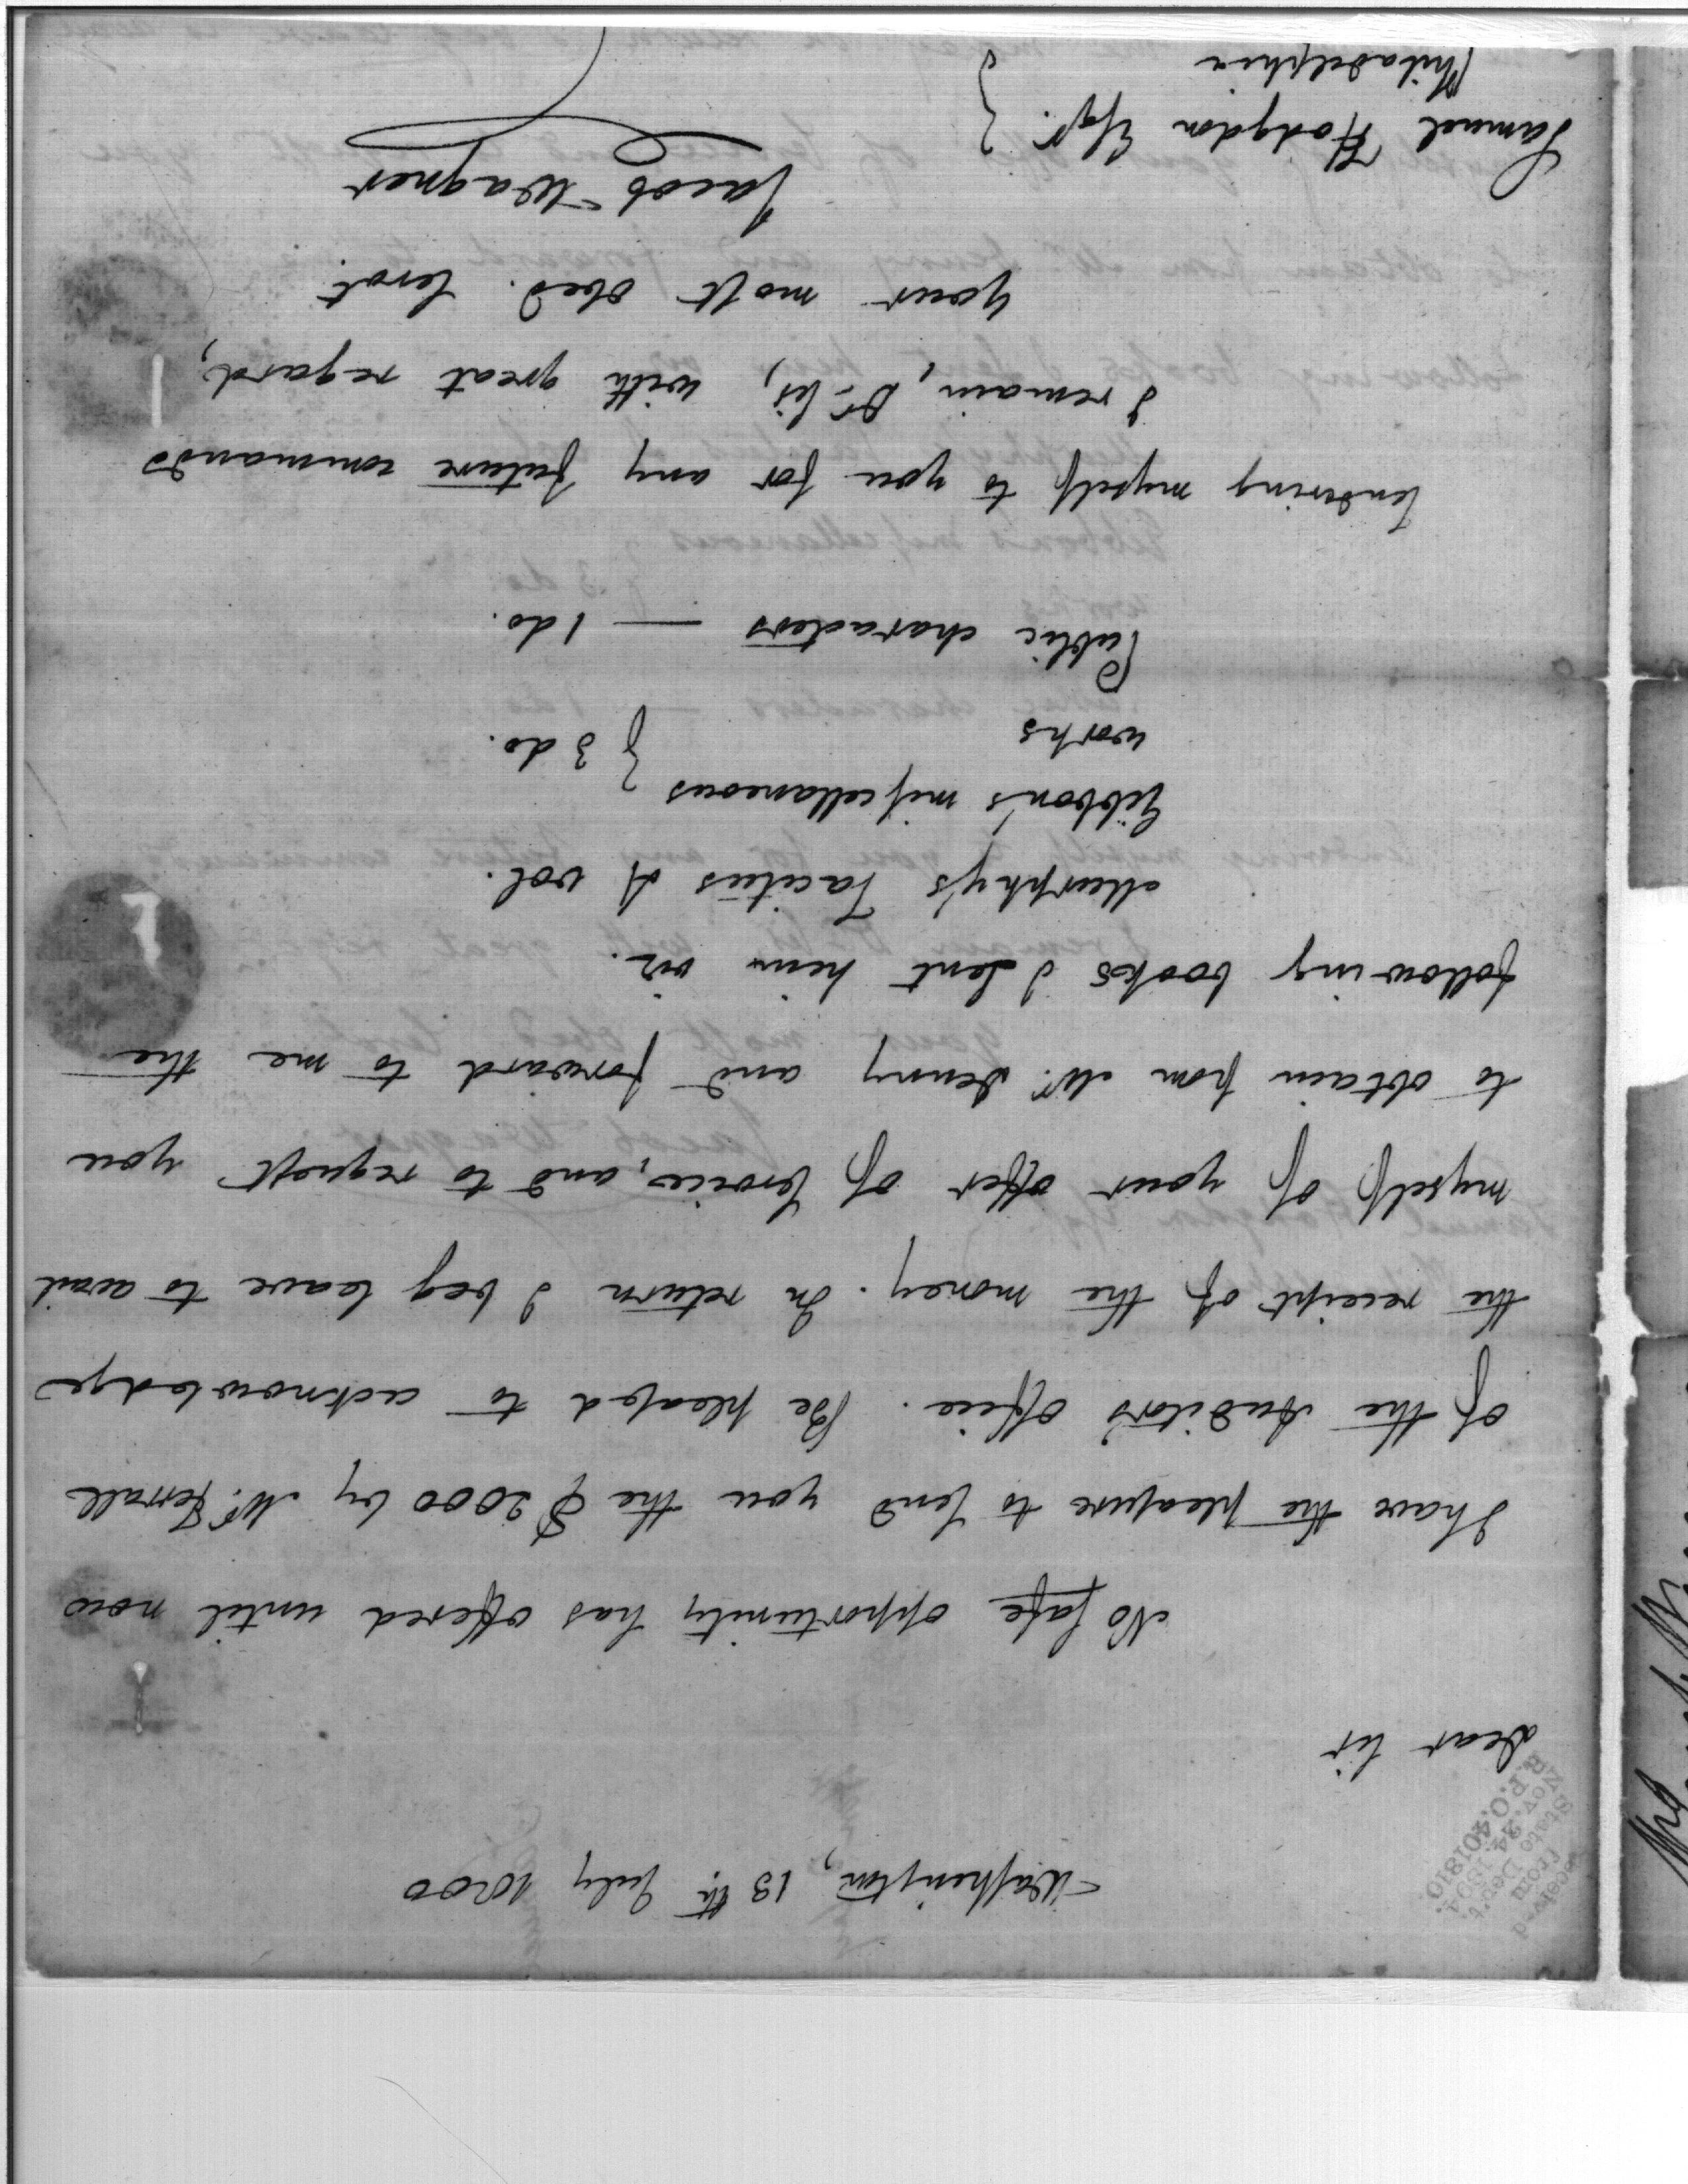 Washington, 13th. July 1800
Received
from
State Dep't.
Nov. 24, 1894.
R.P.O. 401810.
Dear Sir
No safe opportunity has offered until now
I have the pleasure to send you the $2000 by Mr.
of the Auditor's office. Be pleased to acknowledge
the receipt of the money. In return I beg leave to avail
myself of your offer of service, and to request you
to obtain from Mr. Denny and forward to me the
following books I lent him viz.
Murphy's Tacitus 4 vol.
Gibbon's miscellaneous
works } 3 do.
Public characters — 1 do.
Tendering myself to you for any future commands
I remain, Dr. Sir, with great regard,
your most obed. servt.
Jacob Wagner
Samuel Hodgdon Esqr. }
Philadelphia